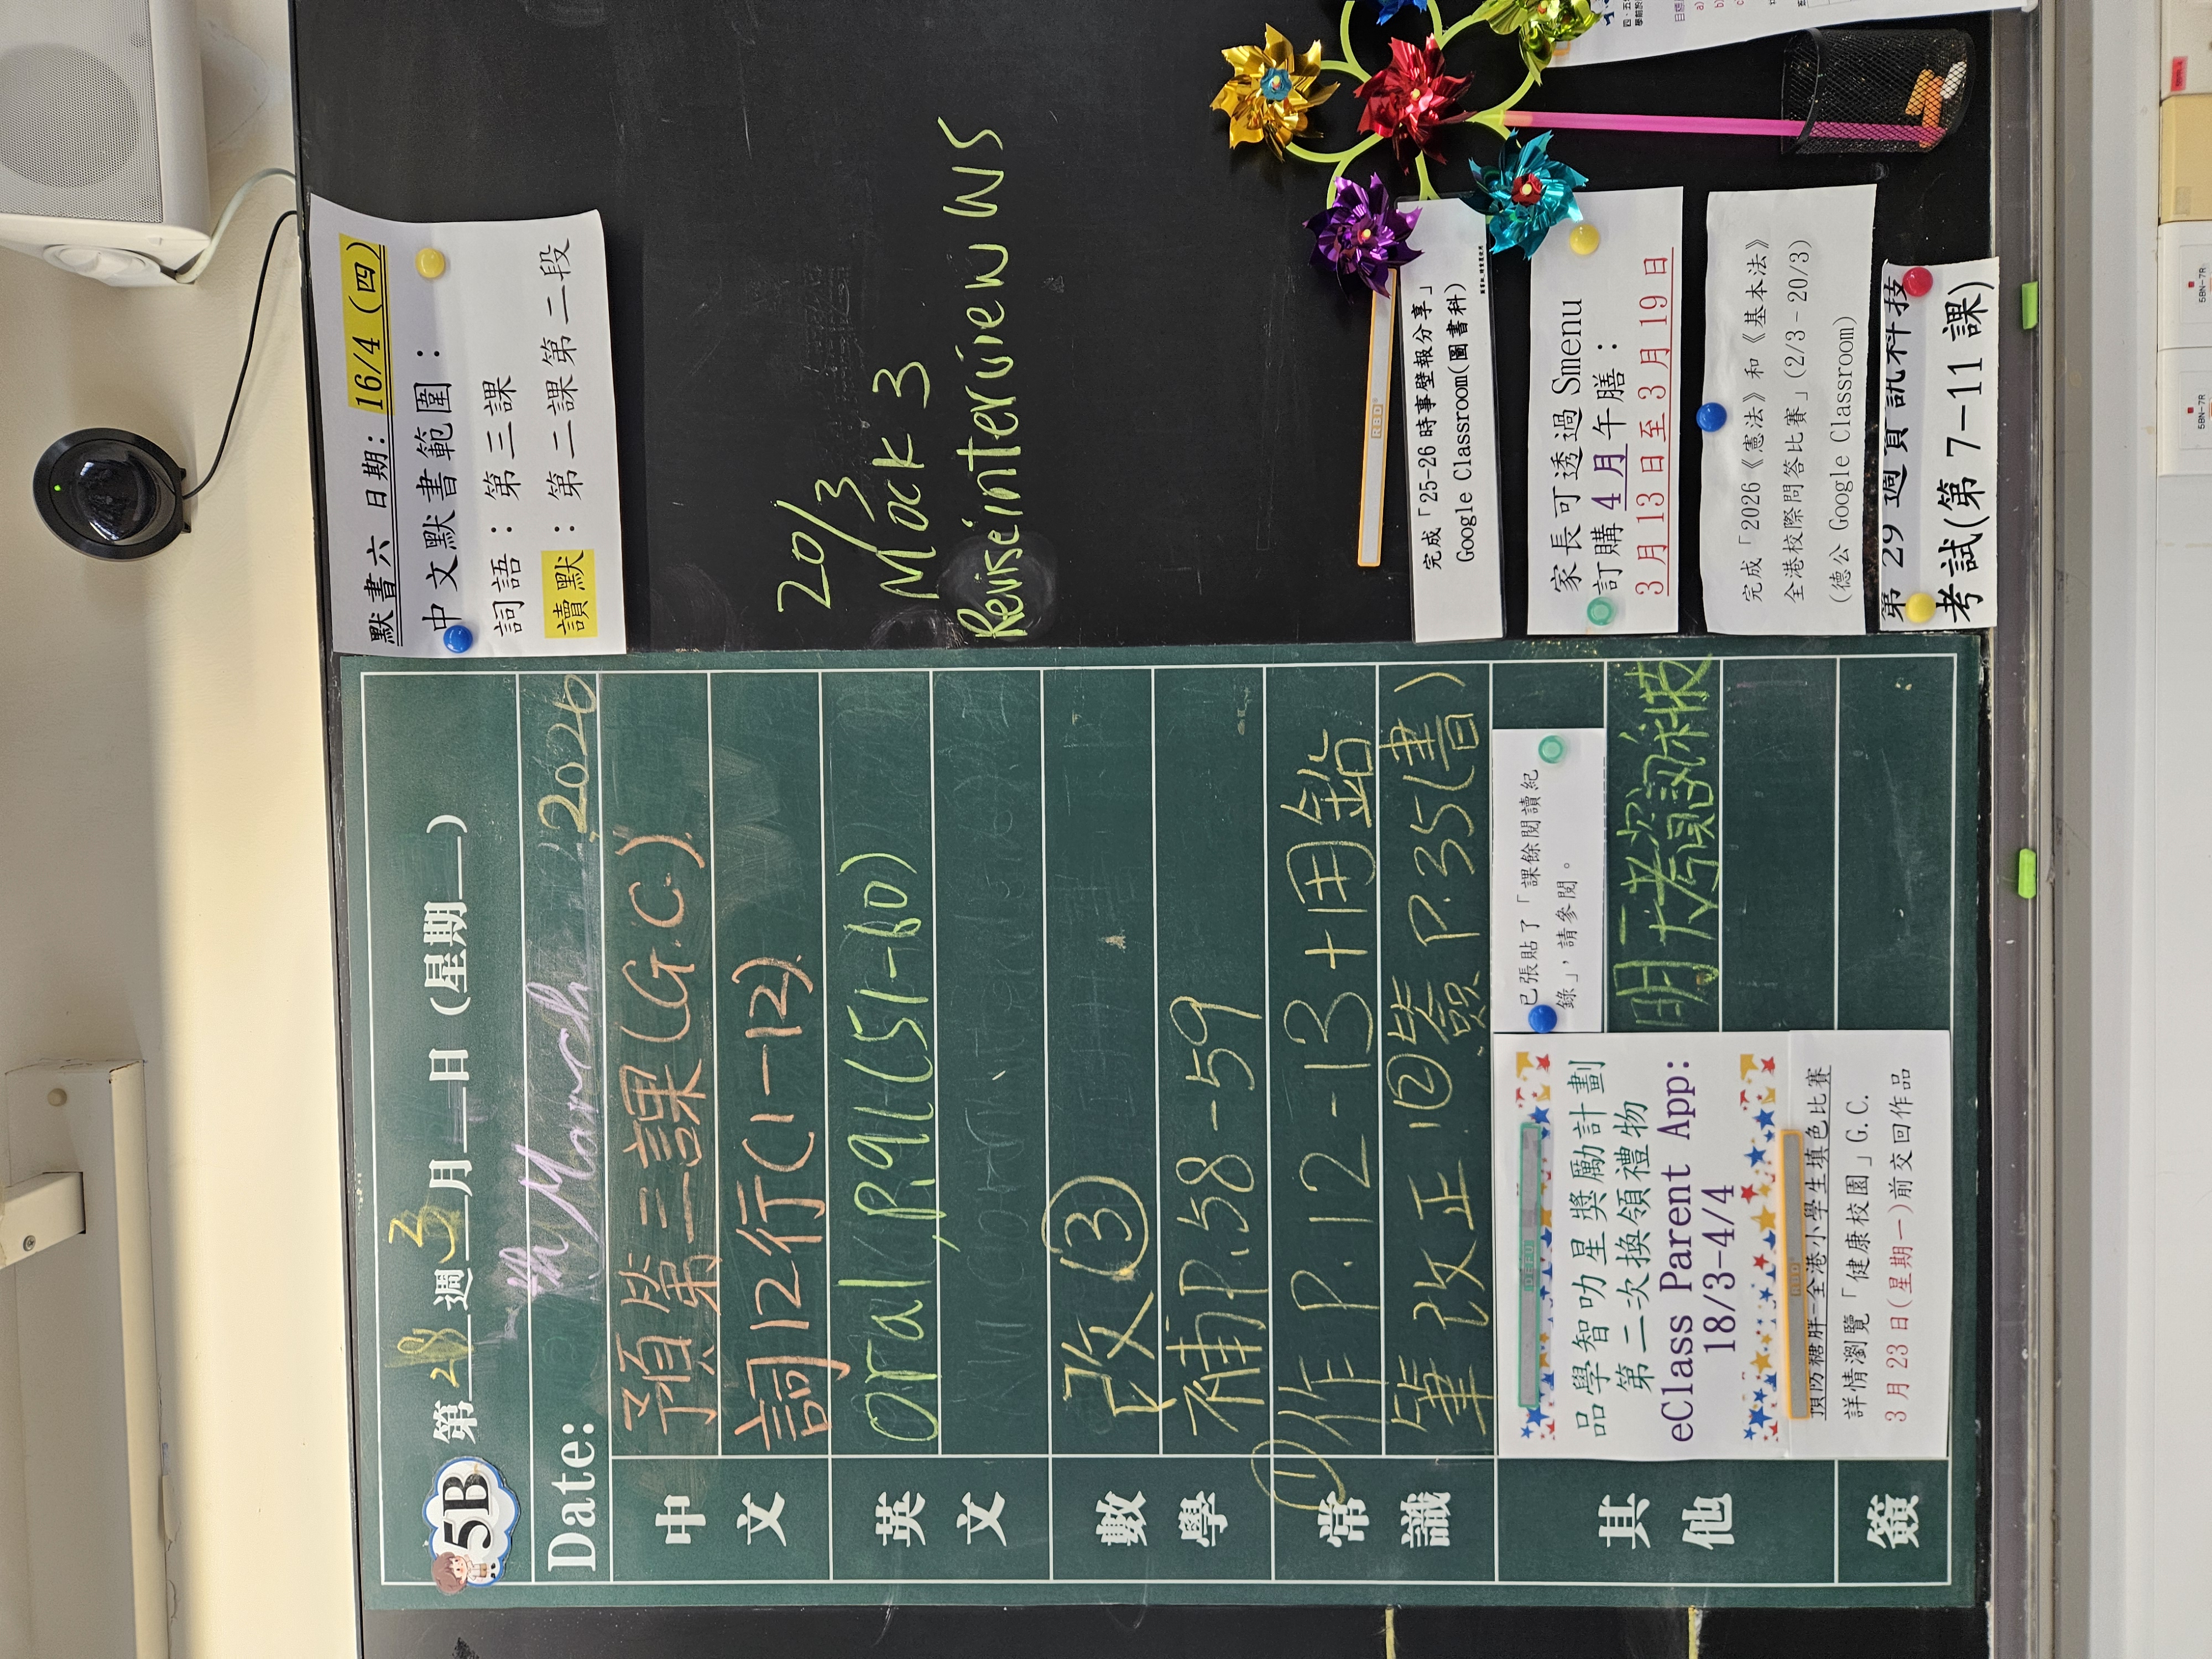 5B 第 週 3 月 日 (星期 )
Date: th March 2026
中文
預第三課(G.C.)
詞12行(1-12)
英文
oral (51-60)
數學
改③
補P.58-59
常識
①作P.12-13+用鉛
筆改正 ②簽 P.35(書)
其他
品學智叻星獎勵計劃
第二次換領禮物
eClass Parent App:
18/3-4/4
預防糖胖-全港小學生填色比賽
詳情瀏覽「健康校園」G.C.
3 月 23 日(星期一)前交回作品
已張貼了「課餘閱讀紀
錄」，請參閱。
明天考資訊科技
簽
默書六 日期: 16/4 (四)
中文默書範圍：
詞語：第三課
讀默：第二課第二段
20/3
Mock 3
Revise interview WS
完成「25-26 時事壁報分享」
Google Classroom(圖書科)
家長可透過 Smenu
訂購 4 月午膳：
3 月 13 日至 3 月 19 日
完成「2026《憲法》和《基本法》
全港校際問答比賽」(2/3-20/3)
(德公 Google Classroom)
第 29 週資訊科技
考試(第 7-11 課)
RBD
RBD